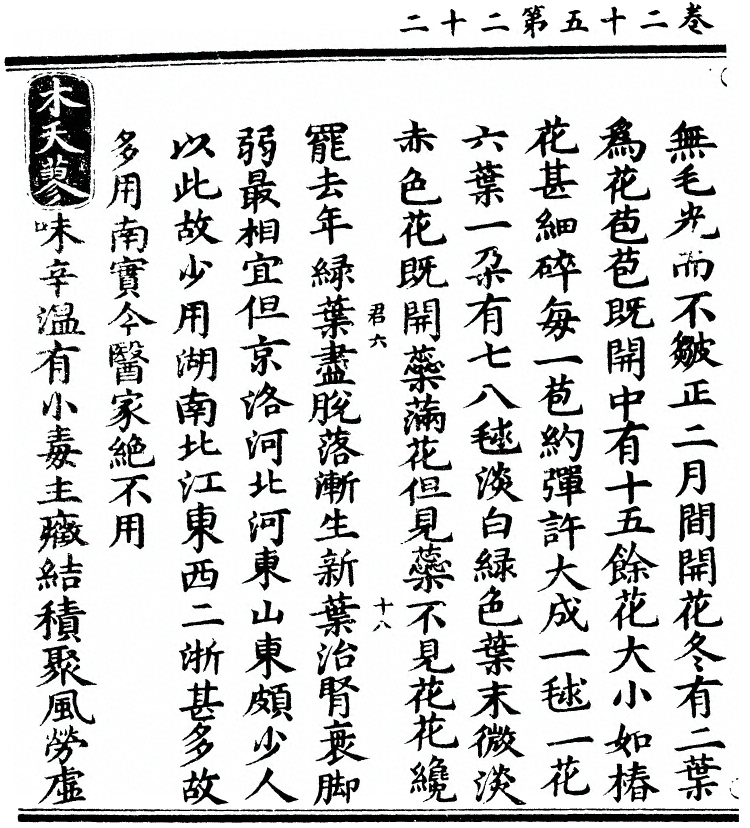 卷二十五第二十二
無毛光而不皺正二月間開花冬有二葉
爲花苞苞既開中有十五餘花大小如椿
花甚細碎每一苞約彈許大成一毬一花
六葉一朶有七八毬淡白緑色葉末微淡
赤色花既開蘂滿花但見蘂不見花花纔
君六
十八
罷去年緑葉盡脫落漸生新葉治腎衰脚
弱最相宜但京洛河北河東山東頗少人
以此故少用湖南北江東西二浙甚多故
多用南實今醫家絶不用
木天蓼味辛溫有小毒主癥結積聚風勞虛